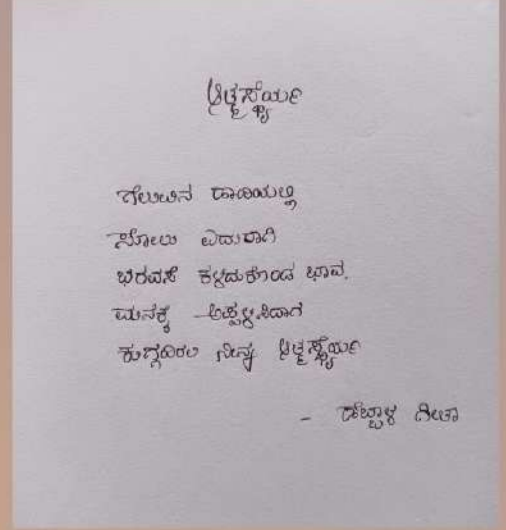 ಆತ್ಮಸ್ಥೈರ್ಯ
ಗೆಲುವಿನ ಹಾದಿಯಲ್ಲಿ
ಸೋಲು ಎದುರಾಗಿ
ಭರವಸೆ ಕಳೆದುಕೊಂಡ ಭಾವ,
ಮನಕ್ಕೆ ಅಪ್ಪಳಿಸಿದಾಗ
ಕುಗ್ಗದಿರಲಿ ನಿನ್ನ ಆತ್ಮಸ್ಥೈರ್ಯ
- ಹೆಬ್ಬಾಳ ಗೀತಾ